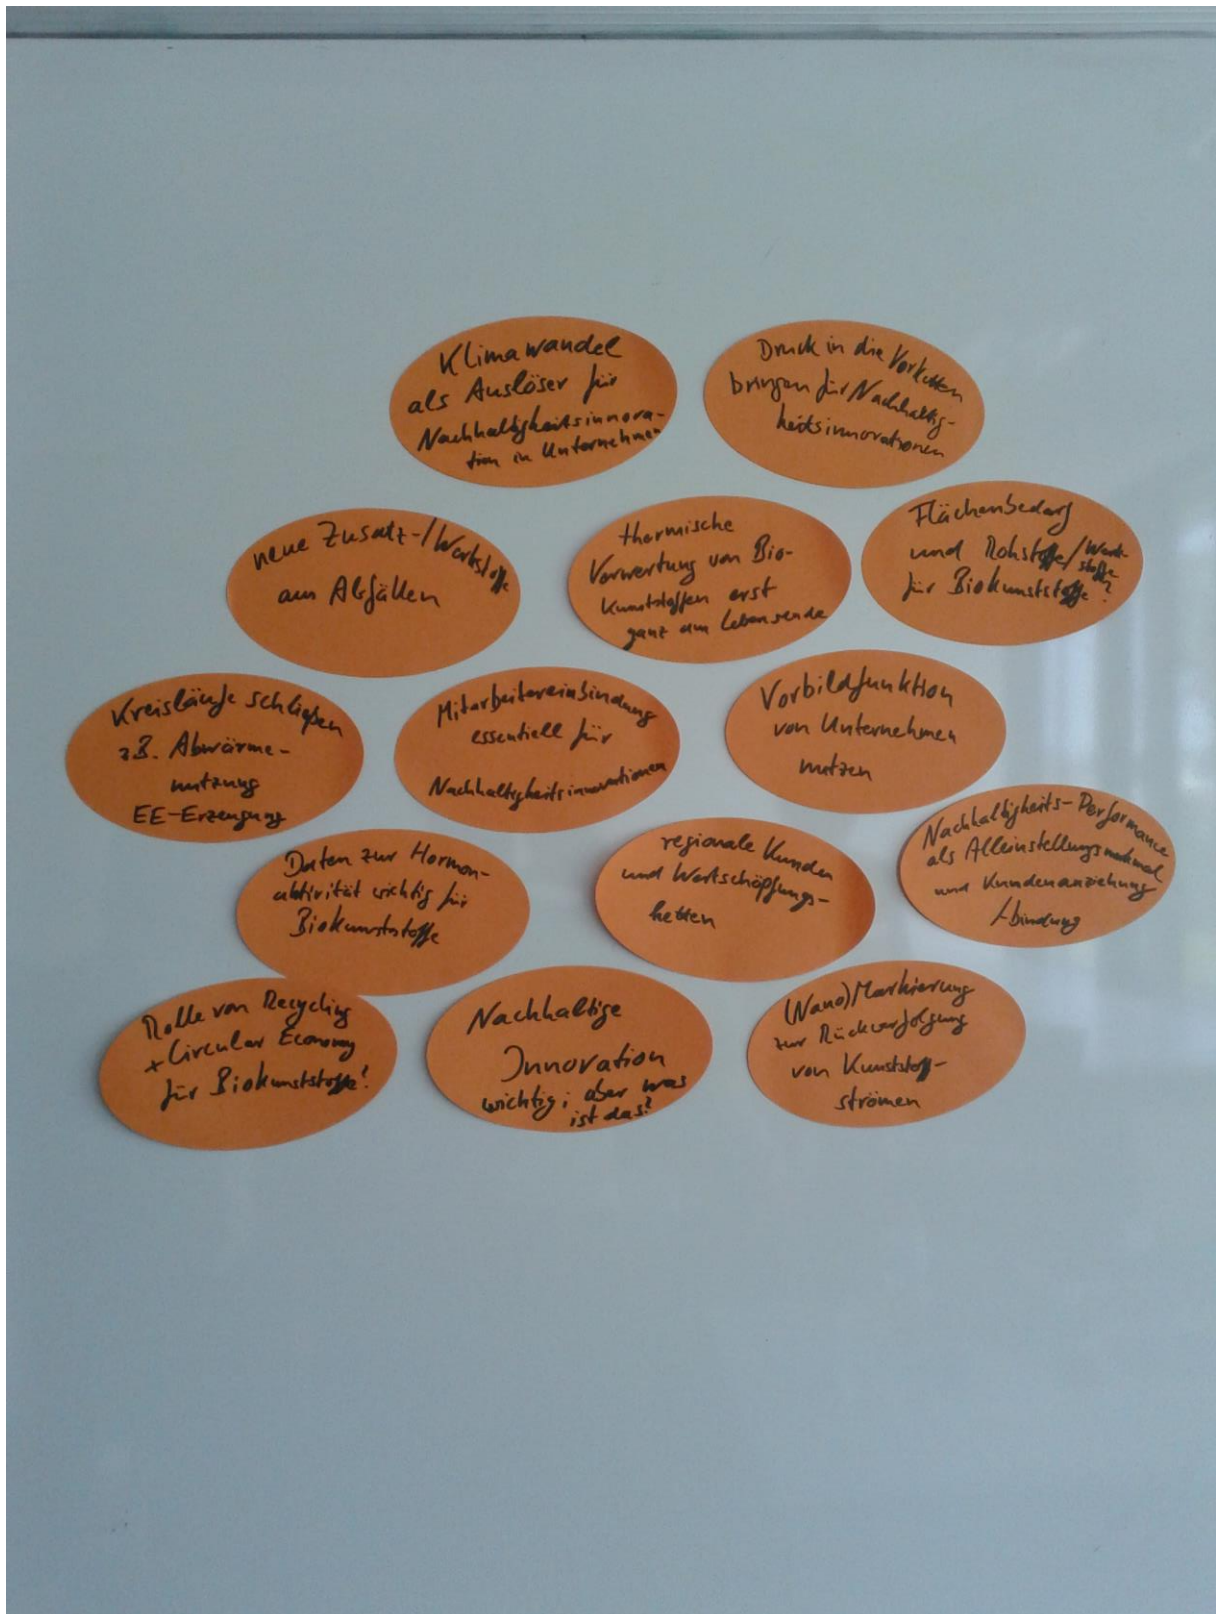 Klimawandel
als Auslöser für
Nachhaltigkeitsinnova-
tion in Unternehmen
Druck in die Vorketten
bringen für Nachhaltig-
keitsinnovationen
neue Zusatz-/Werkstoffe
aus Abfällen
thermische
Verwertung von Bio-
kunststoffen erst
ganz am Lebensende
Flächenbedarf
und Rohstoffe/Werk-
stoffe
für Biokunststoffe?
Kreisläufe schließen
z.B. Abwärme-
nutzung
EE-Erzeugung
Mitarbeitereinbindung
essentiell für
Nachhaltigkeitsinnovationen
Vorbildfunktion
von Unternehmen
nutzen
Daten zur Hormon-
aktivität wichtig für
Biokunststoffe
regionale Kunden
und Wertschöpfungs-
ketten
Nachhaltigkeits-Performance
als Alleinstellungsmerkmal
und Kundenanziehung
/-bindung
Rolle von Recycling
+ Circular Economy
für Biokunststoffe?
Nachhaltige
Innovation
wichtig; aber was
ist das?
(Nano)Markierung
zur Rückverfolgung
von Kunststoff-
strömen